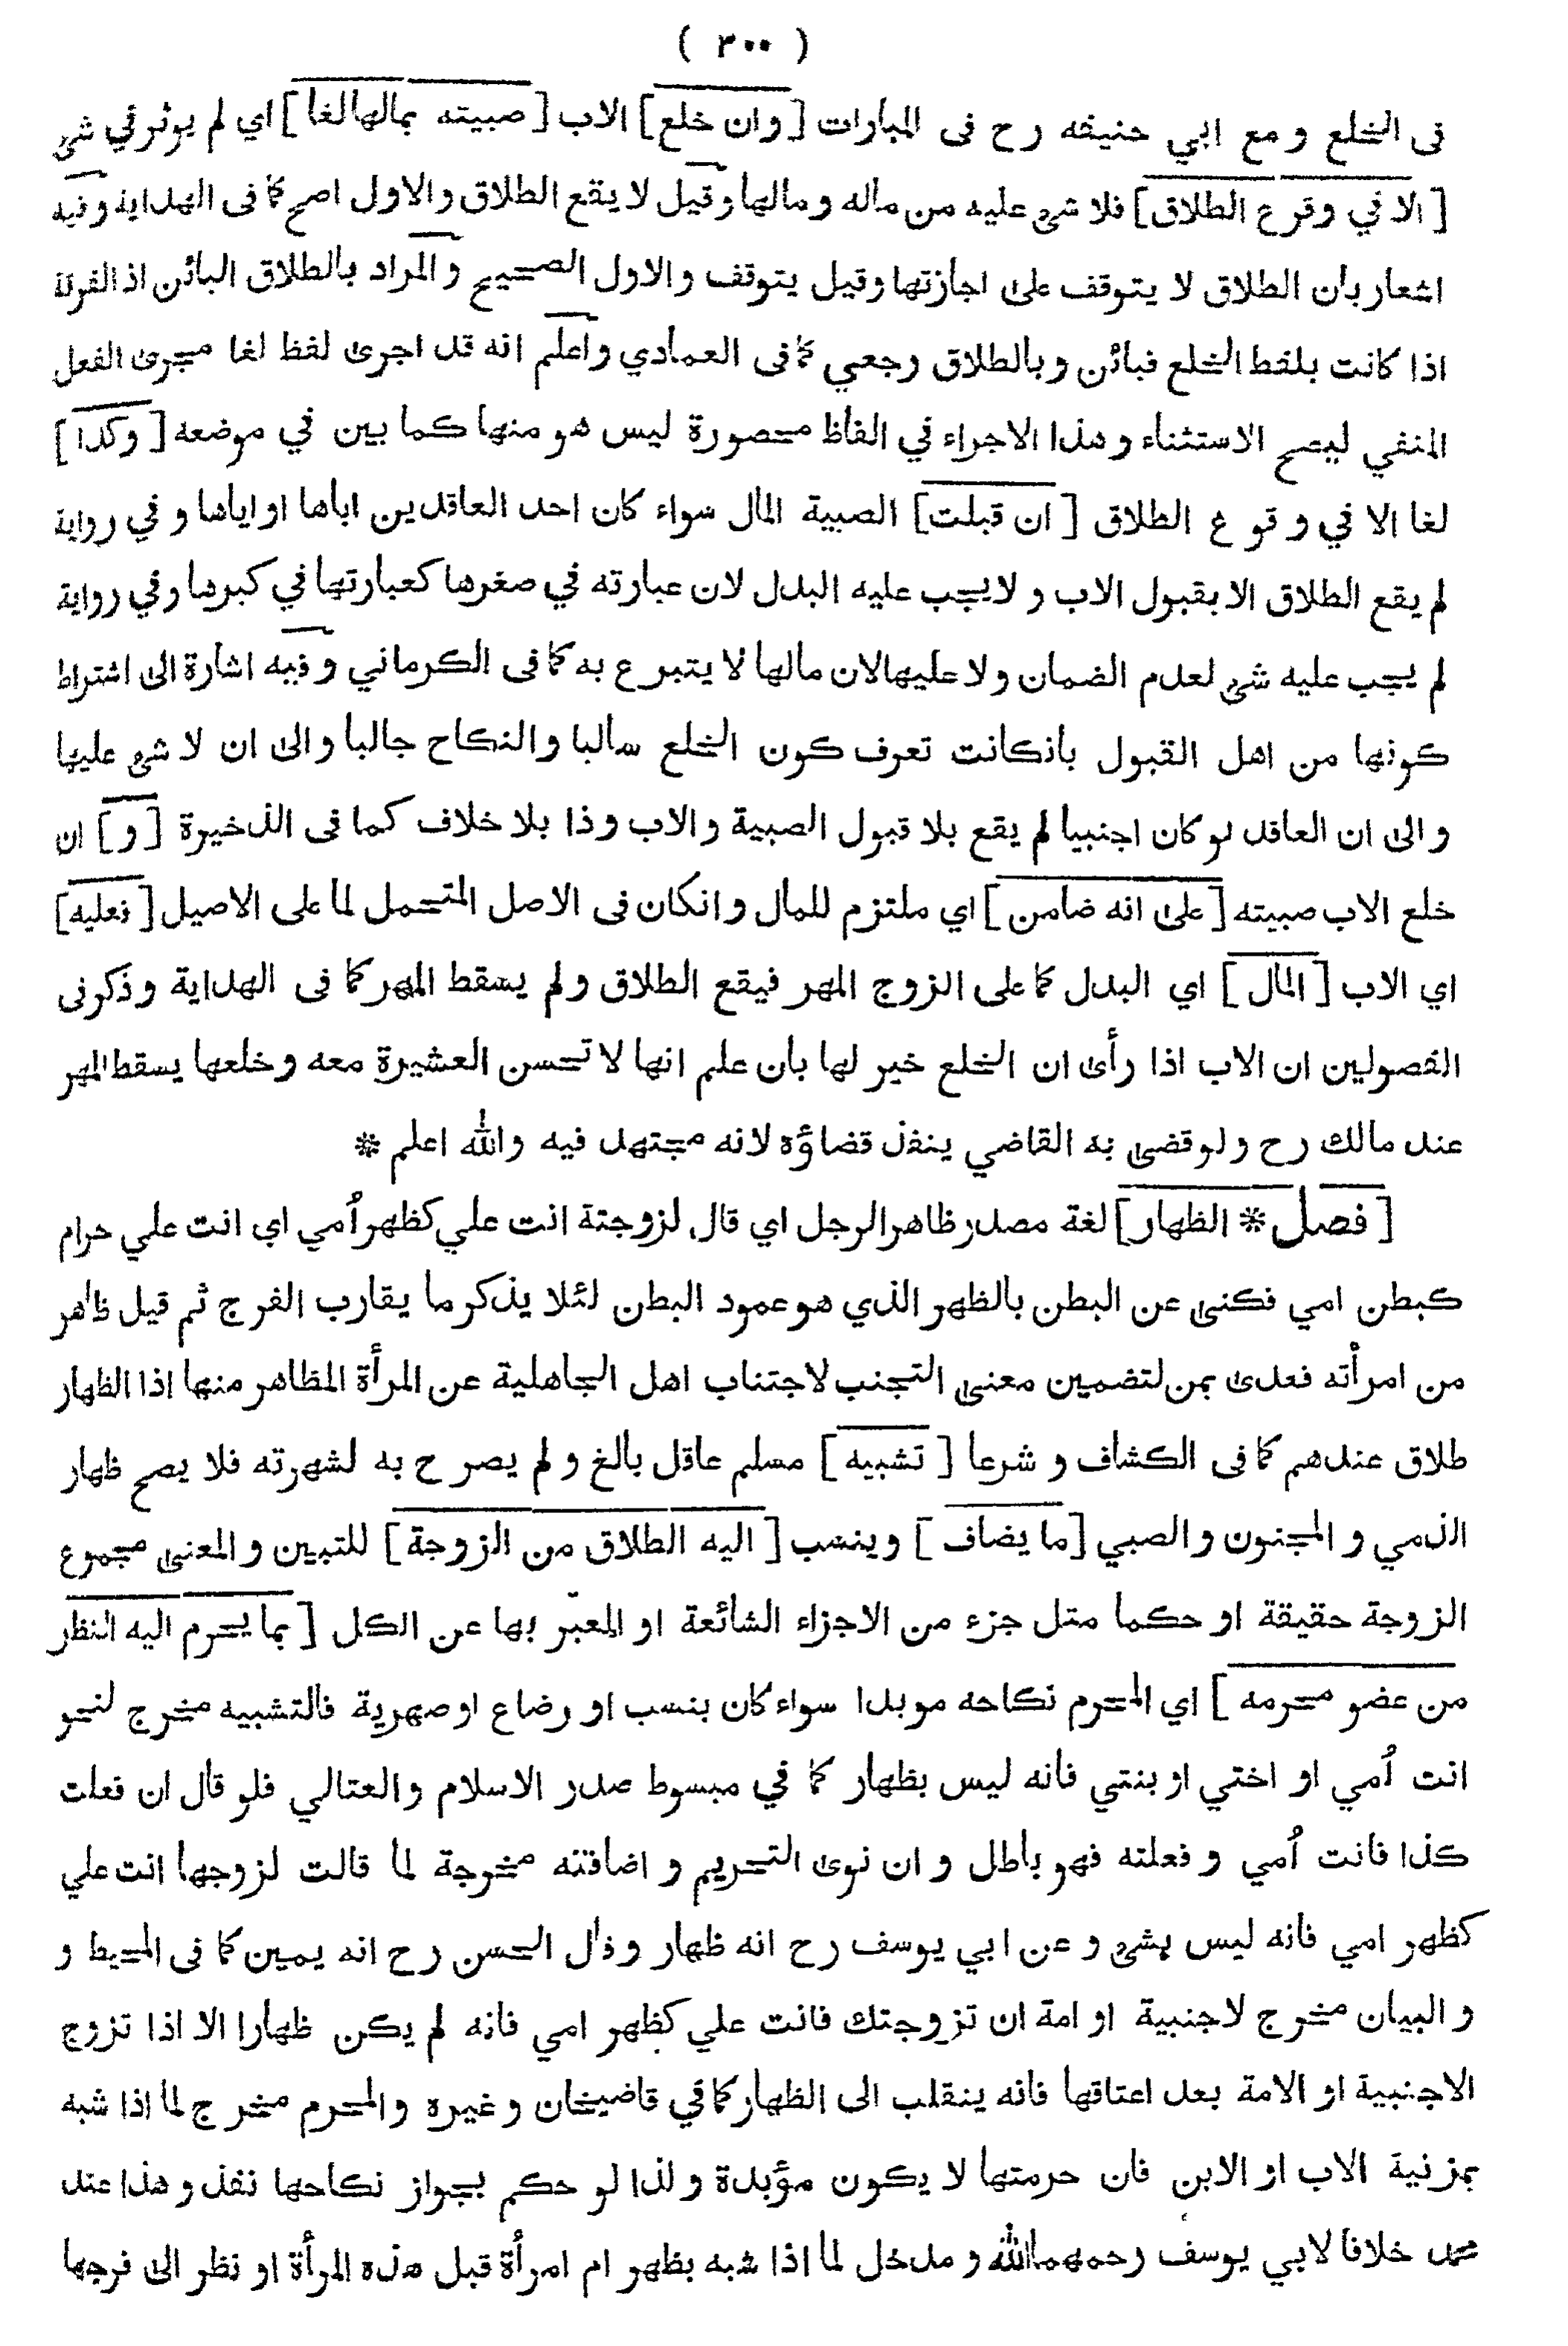 ( ٣٠٠ )
فى الخلع و مع ابي حنيفه رح فى المبارات [وان خلع] الاب [صبيته بمالها لغا] اي لم يوثر في شئ
[الا في وقوع الطلاق] فلا شئ عليه من ماله و مالها وقيل لا يقع الطلاق والاول اصح كما فى الهداية وفيه
اشعار بان الطلاق لا يتوقف على اجازتها وقيل يتوقف والاول الصحيح والمراد بالطلاق البائن اذ الفرقة
اذا كانت بلفظ الخلع فبائن وبالطلاق رجعي كما فى العمادي واعلم انه قد اجرى لفظ لغا مجرى الفعل
المنفي ليصح الاستثناء وهذا الاجراء في الفاظ محصورة ليس هو منها كما بين في موضعه [وكذا]
لغا الا في وقوع الطلاق [ان قبلت] الصبية المال سواء كان احد العاقدين اباها او اياها و في رواية
لم يقع الطلاق الا بقبول الاب و لا يجب عليه البدل لان عبارته في صغرها كعبارتها في كبرها وفي رواية
لم يجب عليه شئ لعدم الضمان ولا عليها لان مالها لا يتبرع به كما فى الكرماني وفيه اشارة الى اشتراط
كونها من اهل القبول بانكانت تعرف كون الخلع سالبا والنكاح جالبا والى ان لا شئ عليها
والى ان العاقد لو كان اجنبيا لم يقع بلا قبول الصبية والاب وذا بلا خلاف كما فى الذخيرة [و] ان
خلع الاب صبيته [على انه ضامن] اي ملتزم للمال وانكان فى الاصل المتحمل لما على الاصيل [فعليه]
اي الاب [المال] اي البدل كما على الزوج المهر فيقع الطلاق ولم يسقط المهر كما فى الهداية وذكر فى
الفصولين ان الاب اذا رأى ان الخلع خير لها بان علم انها لا تحسن العشيرة معه وخلعها يسقط المهر
عند مالك رح ولو قضى به القاضي ينفذ قضاؤه لانه مجتهد فيه والله اعلم *
[فصل * الظهار] لغة مصدر ظاهر الرجل اي قال لزوجتة انت علي كظهر أمي اي انت علي حرام
كبطن امي فكنى عن البطن بالظهر الذي هو عمود البطن لئلا يذكر ما يقارب الفرج ثم قيل ظاهر
من امرأته فعدى بمن لتضمين معنى التجنب لاجتناب اهل الجاهلية عن المرأة المظاهر منها اذا الظهار
طلاق عندهم كما فى الكشاف و شرعا [تشبيه] مسلم عاقل بالغ و لم يصرح به لشهرته فلا يصح ظهار
الذمي و المجنون والصبي [ما يضاف] وينسب [اليه الطلاق من الزوجة] للتبيين والمعنى مجموع
الزوجة حقيقة او حكما مثل جزء من الاجزاء الشائعة او المعبّر بها عن الكل [بما يحرم اليه النظر
من عضو محرمه] اي المحرم نكاحه موبدا سواء كان بنسب او رضاع او صهرية فالتشبيه مخرج لنحو
انت أمي او اختي او بنتي فانه ليس بظهار كما في مبسوط صدر الاسلام والعتالي فلو قال ان فعلت
كذا فانت أمي و فعلته فهو باطل و ان نوى التحريم و اضافته مخرجة لما قالت لزوجها انت علي
كظهر امي فانه ليس بشئ و عن ابي يوسف رح انه ظهار وقال الحسن رح انه يمين كما فى المحيط و
و البيان مخرج لاجنبية او امة ان تزوجتك فانت علي كظهر امي فانه لم يكن ظهارا الا اذا تزوج
الاجنبية او الامة بعد اعتاقها فانه ينقلب الى الظهار كما في قاضيخان وغيره والمحرم مخرج لما اذا شبه
بمزنية الاب او الابن فان حرمتها لا يكون مؤبدة ولذا لو حكم بجواز نكاحها نفذ وهذا عند
محمد خلافا لابي يوسف رحمهما الله و مدخل لما اذا شبه بظهر ام امرأة قبل هذه المرأة او نظر الى فرجها